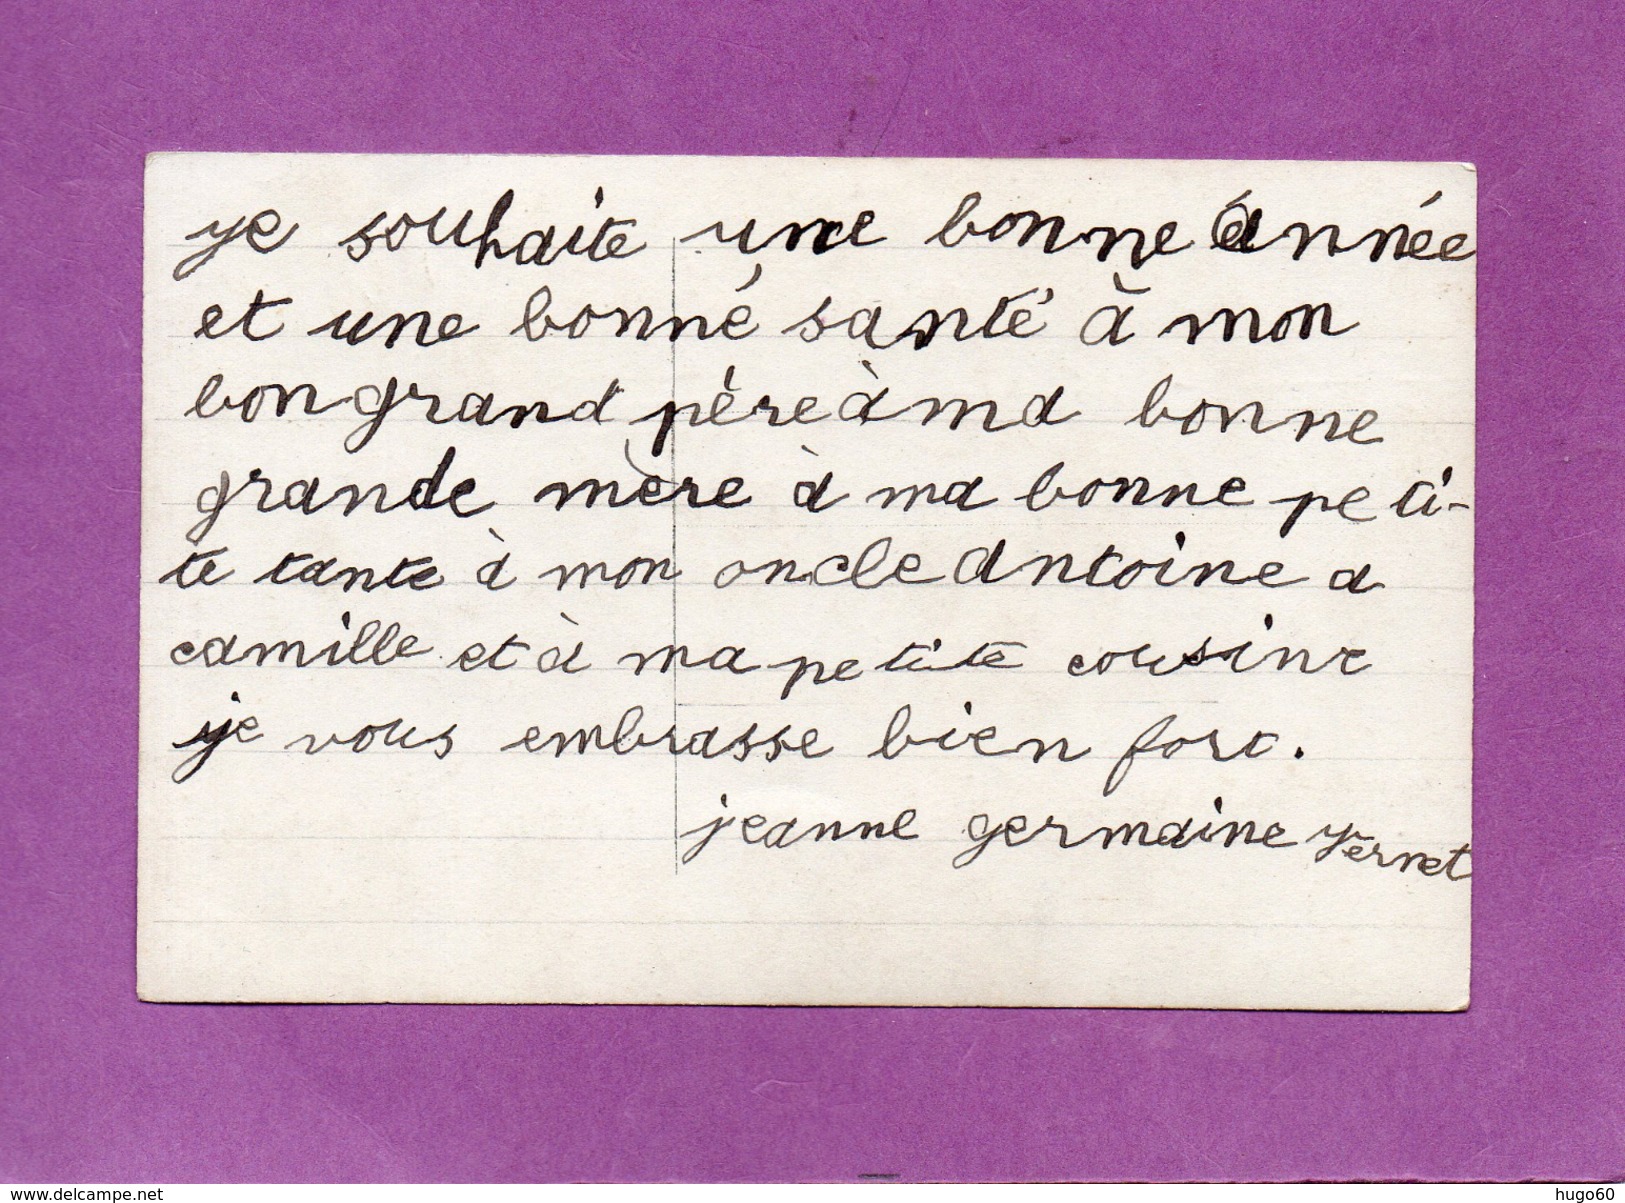 je souhaite une bonne année
et une bonné santé à mon
bon grand père à ma bonne
grande mère à ma bonne peti-
te tante à mon oncle antoine a
camille et à ma petite cousine
je vous embrasse bien fort.
jeanne germaine
www.delcampe.net
hugo60